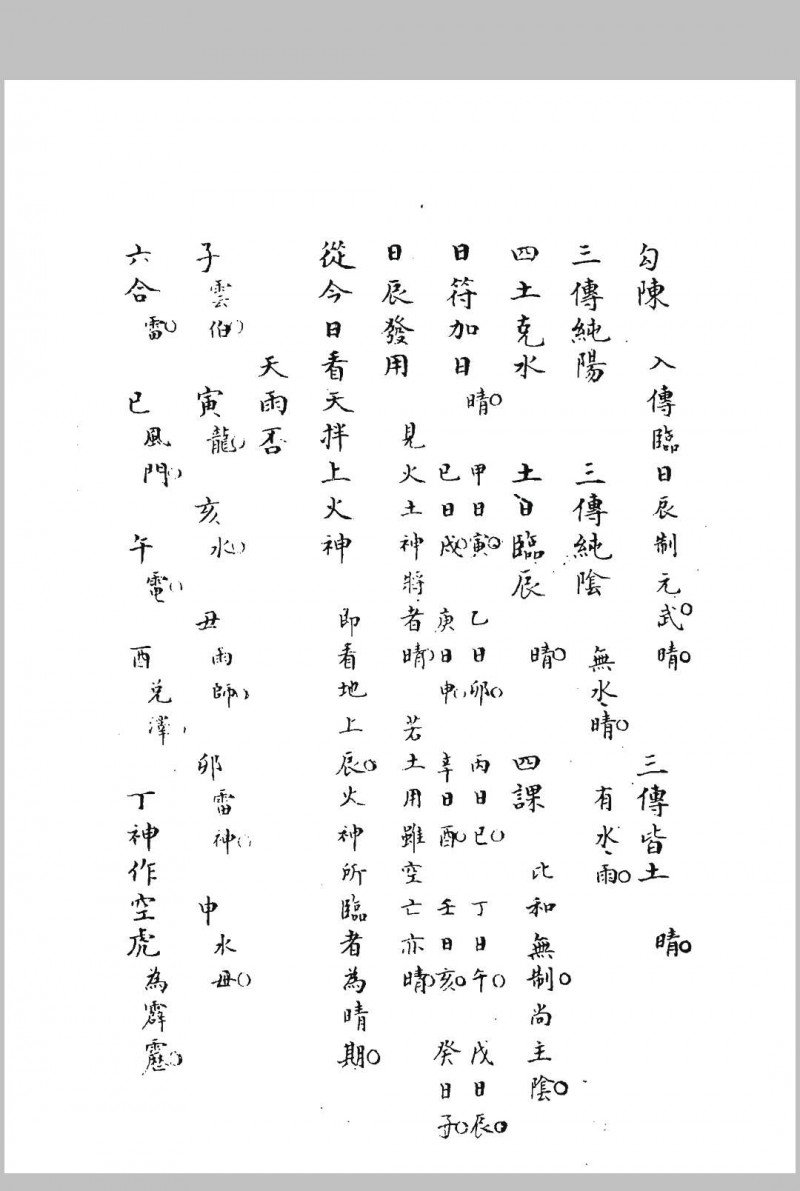 勾陳　入傳臨日辰制元武。晴。　三傳皆土　晴。
三傳純陽　三傳純陰　無水晴。　有水雨。
四土克水　土日臨辰　晴。　四課　比和無制。尚主陰。
日符加日　晴。　甲日寅。　乙日卯。　丙日巳。　丁日午。　戊日辰。
己日戌。　庚日申。　辛日酉。　壬日亥。　癸日子。
日辰發用　見火土神將者晴。　若土用雖空亡亦晴。
從今日看天拌上火神　即看地上辰。火神所臨者為晴期。
天雨否
子　雲伯。　寅　龍。　亥　水。　丑　雨師。　卯　雷神。　申　水母。
六合　雷。　巳　風門。　午　電。　酉　兌澤。　丁神作空虎　為霹靂。